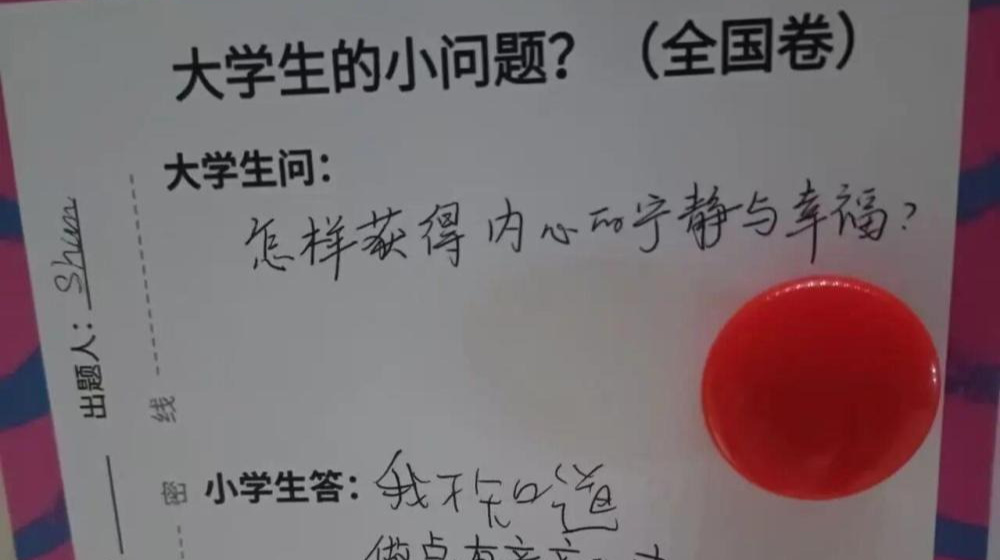 大学生的小问题？（全国卷）
大学生问：
怎样获得内心的宁静与幸福？
出题人：Shun
线
密
小学生答：我不知道
做点有意